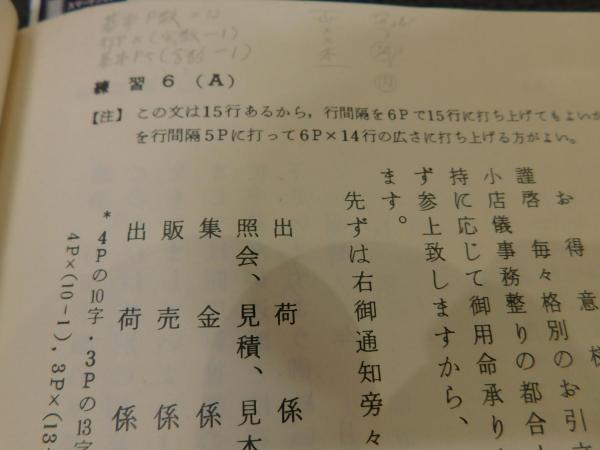 練習6(A)
【注】 この文は15行あるから，行間隔を6Pで15行に打ち上げてもよいが
を行間隔5Pに打って6P×14行の広さに打ち上げる方がよい。
お得意様
謹啓　毎々格別のお引立
小店儀事務整りの都合
持に応じて御用命承り
ず参上致しますから、
ます。
先ずは右御通知旁々
出荷係
照会、見積、見本
集金係
販売係
出荷係
*4Pの10字・3Pの13字
4P×(10−1)，3P×(13−